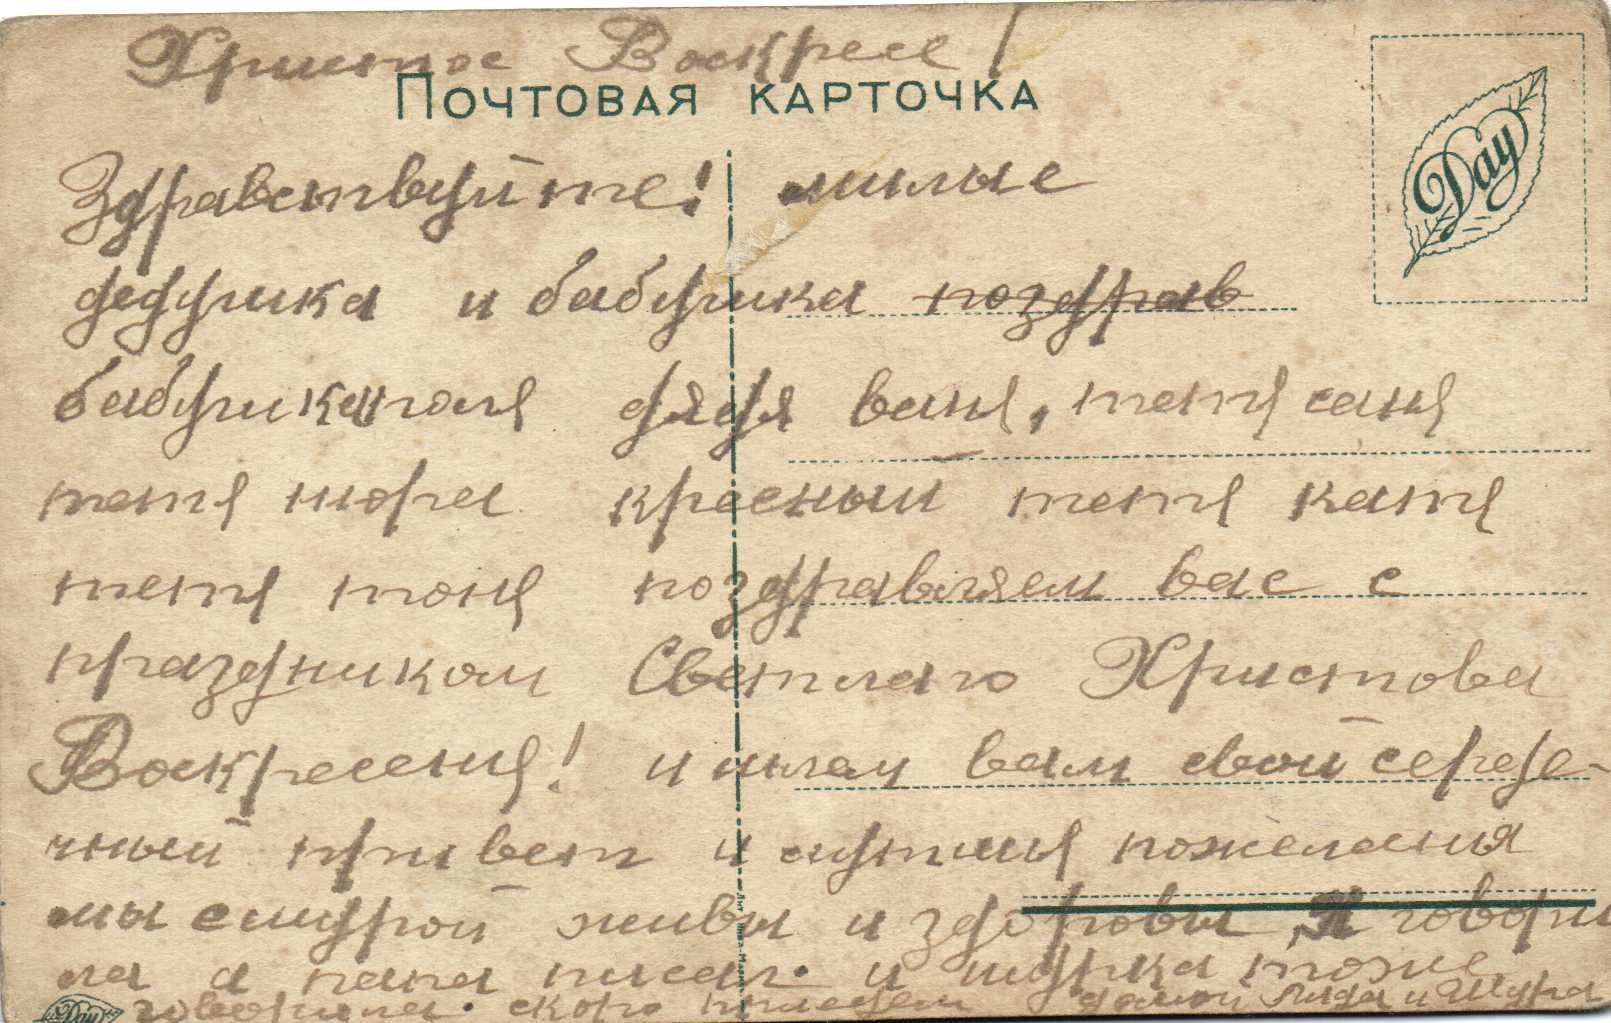 Христос Воскресе!
ПОЧТОВАЯ КАРТОЧКА
Day
Здравствуйте! милые
дедушка и бабушка поздрав
бабушка поля дядя ваня, тетя саня
тетя шюра кресный тетя катя
тетя тоня поздравляем вас с
праздником Светлаго Христова
Воскресения! и шлем вам свой серде-
чный привет и лутшия пожелания
мы с шурой живы и здоровы, Я говори
ла а папа писал. и шурка тоже
Day говорила. скоро приедем домой Лида и Шура